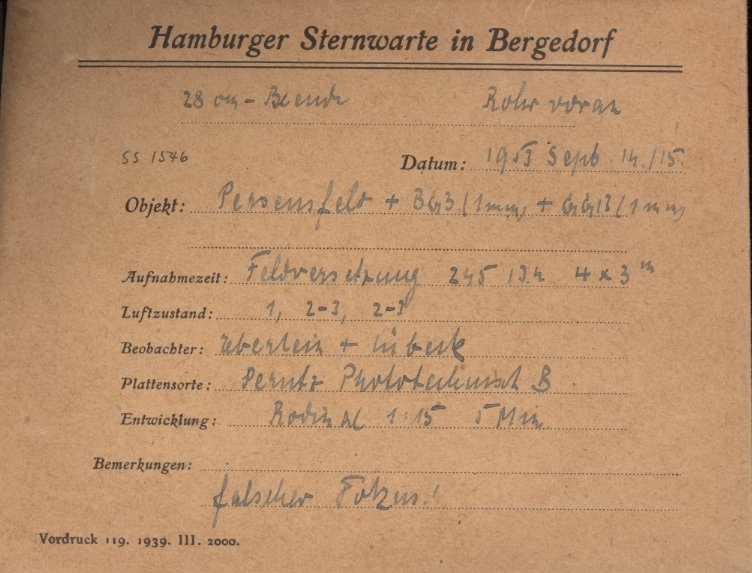 Hamburger Sternwarte in Bergedorf
28 cm-Blende Rohr voran
SS 1546
Datum: 1953 Sept. 14./15.
Objekt: Perseusfeld + BG3 (1mm) + GG13 (1mm)
Aufnahmezeit: Feldversetzung 245 4 x 3 m
Luftzustand: 1, 2-3, 2-3
Beobachter: Eberlein + Lübeck
Plattensorte: Perutz Phototechnisch B
Entwicklung: Rodinal 1:15 5 Min
Bemerkungen:
falscher Fokus!
Vordruck 119. 1939. III. 2000.